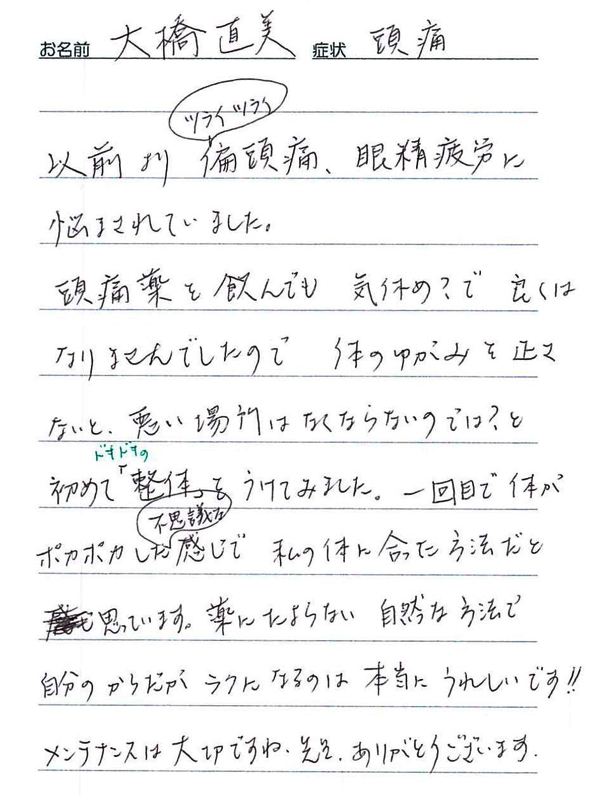 お名前 大橋直美 症状 頭痛
ツライツライ
以前より 偏頭痛、眼精疲労に
悩まされていました。
頭痛薬を飲んでも 気休め?で 良くは
なりませんでしたので 体のゆがみを正さ
ないと、悪い場所はなくならないのでは?と
ドキドキの
初めて「整体」をうけてみました。一回目で体が
不思議な
ポカポカした感じで 私の体に合った方法だと
思っています。薬にたよらない 自然な方法で
自分のからだがラクになるのは本当にうれしいです!!
メンテナンスは大切ですね。先生、ありがとうございます。